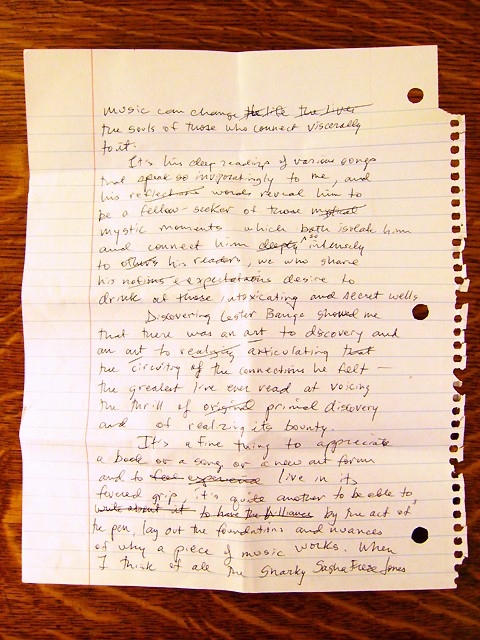 music can change the life the lives
the souls of those who connect viscerally
to it.
It's his deep readings of various songs
that speak so invigoratingly to me, and
his reflections words reveal him to
be a fellow-seeker of those mystical
mystic moments which both isolate him
and connect him deeply so intensely
to others his readers, we who share
his notions & expectations desire to
drink at those intoxicating and secret wells
Discovering Lester Bangs showed me
that there was an art to discovery and
an art to realizing articulating that
the circuitry of the connections he felt –
the greatest I've ever read at voicing
the thrill of original primal discovery
and of realizing its bounty.
It's a fine thing to appreciate
a book or a song or a new art form
and to feel experience live in its
fevered grip, it's quite another to be able to,
write about it to have the brilliance by the act of
the pen, lay out the foundations and nuances
of why a piece of music works. When
I think of all the snarky Sasha Frere Jones